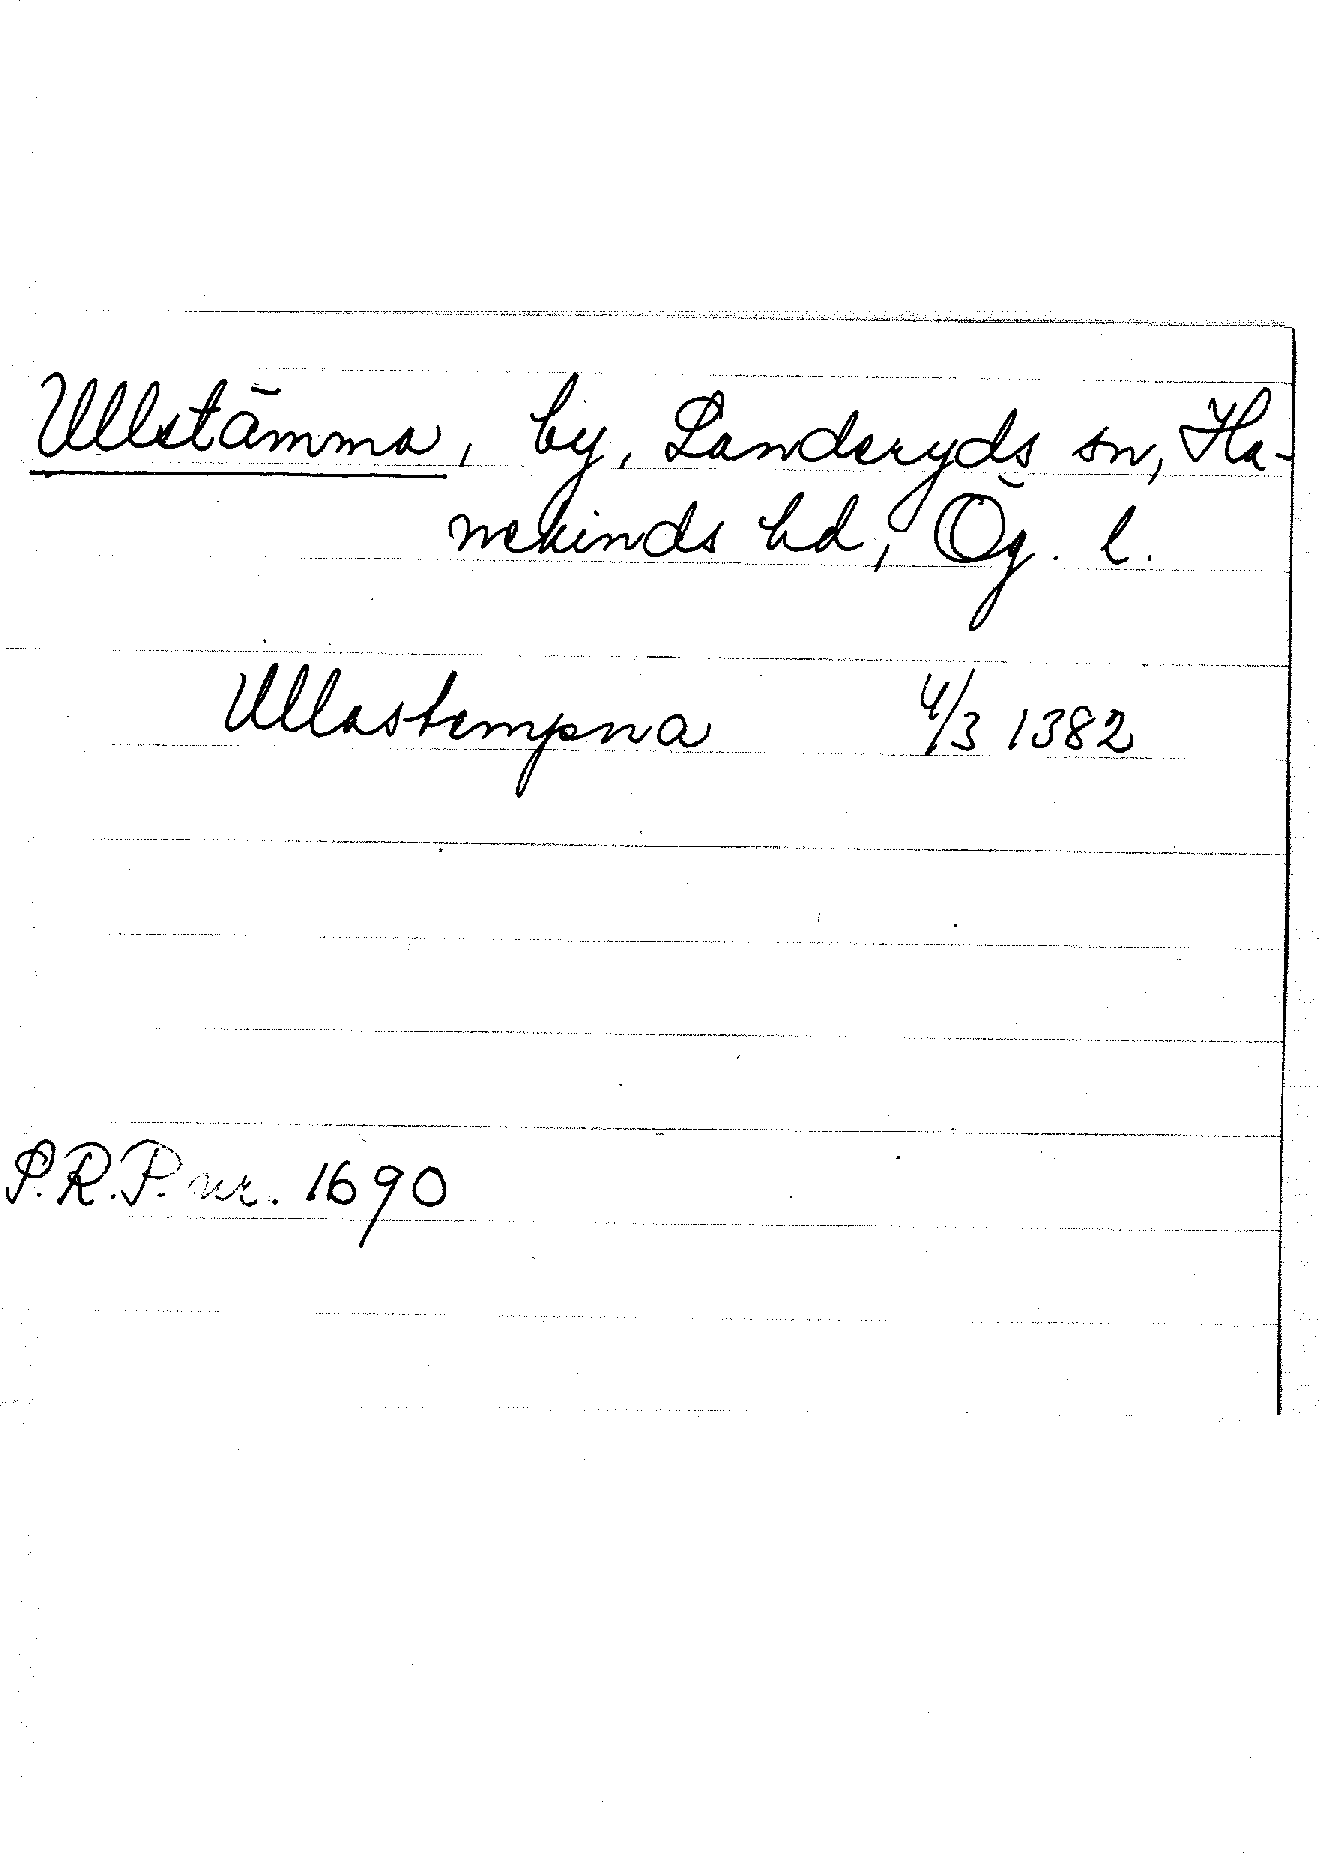 Ullstämma, by, Landeryds sn, Ha-
nekinds hd, Ög. l.
Ullastempna 4/3 1382
S.R.P. nr. 1690